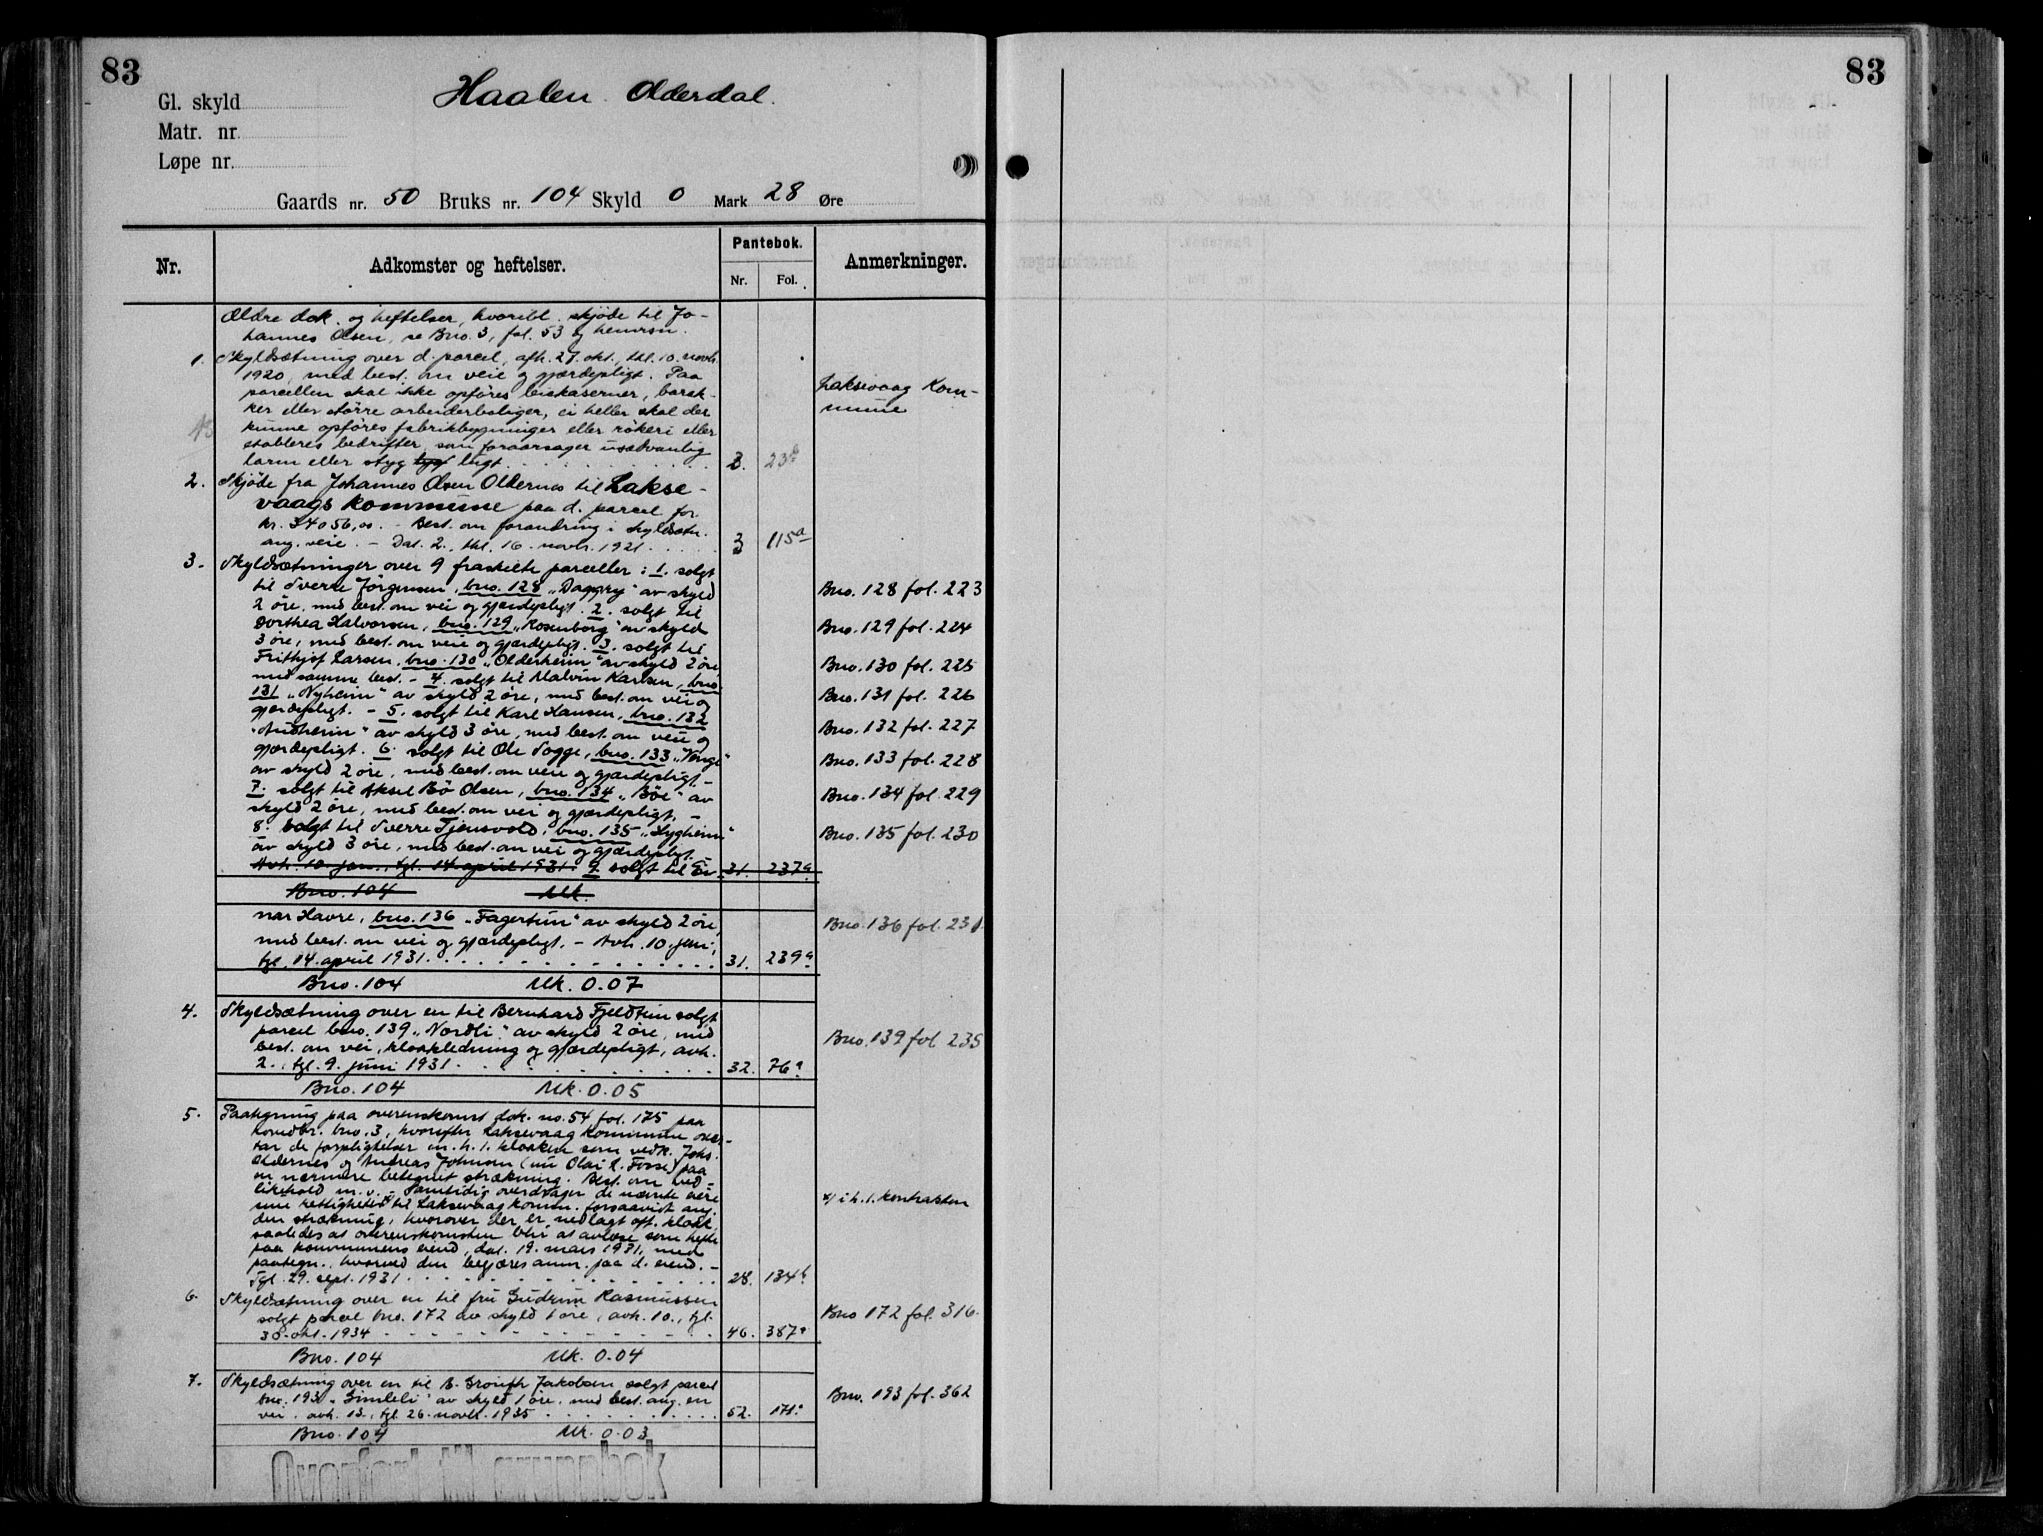 83
Haalen Olderdal.
Gl. skyld
Matr. nr.
Løpe nr.
Gaards nr. 50 Bruks nr. 104 Skyld 0 Mark 28 Øre
Nr.
Adkomster og heftelser.
Pantebok.
Nr. Fol.
Anmerkninger.
Ældre dok. og heftelser, hvoribl. skjøde til Jo-
hannes Olsen, se Bno. 3, fol. 53 og henvisn.
1. Skyldsætning over d. parcel, afh. 27. okt., thl. 10. novb.
1920, med best. om veie og gjærdepligt. Paa
parcellen skal ikke opføres leiekaserner, barak-
Laksevaag Kom-
ker eller større arbeiderboliger, ei heller skal der
mune
kunne opføres fabrikbygninger eller røkeri eller
etableres bedrifter, som foraarsager usædvanlig
larm eller styg lugt 3. 23b
2. Skjøde fra Johannes Olsen Oldernes til Lakse-
vaags kommune paa d. parcel for
kr. 34056,00. - Best. om forandring i skyldsætn.
ang. veie. - Dat. 2., thl. 16. novb. 1921 3 115a
3. Skyldsætninger over 9 fraskilte parceller: 1. solgt
til Sverre Jørgensen, bno. 128 "Daggry" av skyld
Bno. 128 fol. 223
2 øre, med best. om vei og gjærdepligt. 2. solgt til
Dorthea Halvorsen, bno. 129 "Rosenborg" av skyld
Bno. 129 fol. 224
3 øre, med best. om veie og gjærdepligt. 3. solgt til
Frithjof Larsen, bno. 130 "Olderheim" av skyld 2 øre,
Bno. 130 fol. 225
med samme best. - 4. solgt til Malvin Karlsen, bno.
131 "Nyheim" av skyld 2 øre, med best. om vei og
Bno. 131 fol. 226
gjærdepligt. - 5. solgt til Karl Hansen, bno. 132
av skyld 3 øre, med best. om veie og
Bno. 132 fol. 227
gjærdepligt. 6. solgt til Ole Togge, bno. 133
Bno. 133 fol. 228
av skyld 2 øre, med best. om veie og gjærdepligt. -
7. solgt til Aksel Bö Olsen, bno. 134 "Böe" av
Bno. 134 fol. 229
skyld 2 øre, med best. om vei og gjærdepligt. -
8. solgt til Sverre Tjensvold, bno. 135 "Lygheim"
Bno. 135 fol. 230
av skyld 3 øre, med best. om vei og gjærdepligt.
Avh. 10. jan., tgl. 14. april 1931. 9. solgt til Ei- 31. 237a
Bno. 104 Mk.
nar Havre, bno. 136 "Fagertun" av skyld 2 øre,
Bno. 136 fol. 231
med best. om vei og gjærdepligt. - Avh. 10. jan.,
tgl. 14. april 1931 31. 239a
Bno. 104 Mk. 0.07
4. Skyldsætning over en til Bernhard Fjeldtun solgt
parcel bno. 139 "Nordli" av skyld 2 øre, med
Bno. 139 fol 235
best. om vei, kloakledning og gjærdepligt, avh.
2., tgl. 9. juni 1931 32. 76a
Bno. 104 Mk. 0.05
5. Paategning paa overenskomst dok. no. 54 fol. 175 paa
hovedbr. bno. 3, hvorefter Laksevaag kommune over-
tar de forpligtelser m. h. t. kloaken som vedk. Johs.
Oldernes og Andreas Johnsen (nu Olai L. Fosse) paa
en nærmere betegnet strækning. Best. om ved-
likehold m. v. - Samtidig overdrager de nævnte eiere
x/ i h. t. kontrakten
sine rettigheter til Laksevaag komm. forsaavidt ang.
den strækning, hvorover der er nedlagt oft. kloak,
saaledes at overenskomsten blir at avløse som hefte
paa kommunens eiend., dat. 19. mars 1931, med
paategn., hvorved den begjæres anm. paa d. eiend. -
Tgl. 29. sept. 1931 28. 134b
6. Skyldsætning over en til fru Gudrun Rasmussen
solgt parcel bno. 172 av skyld 1 øre, avh. 10., tgl.
Bno 172 fol. 316.
30. okt. 1934 46. 387a
Bno. 104 Mk. 0.04
7. Skyldsætning over en til Jakobsen solgt parcel
bno. 193 "Simleli" av skyld 1 øre, med best. ang. en
Bno. 193 fol. 362
vei, avh. 13., tgl. 26. novb. 1935 52. 171a
Bno. 104 Mk. 0.03
Overført til grunnbok
83